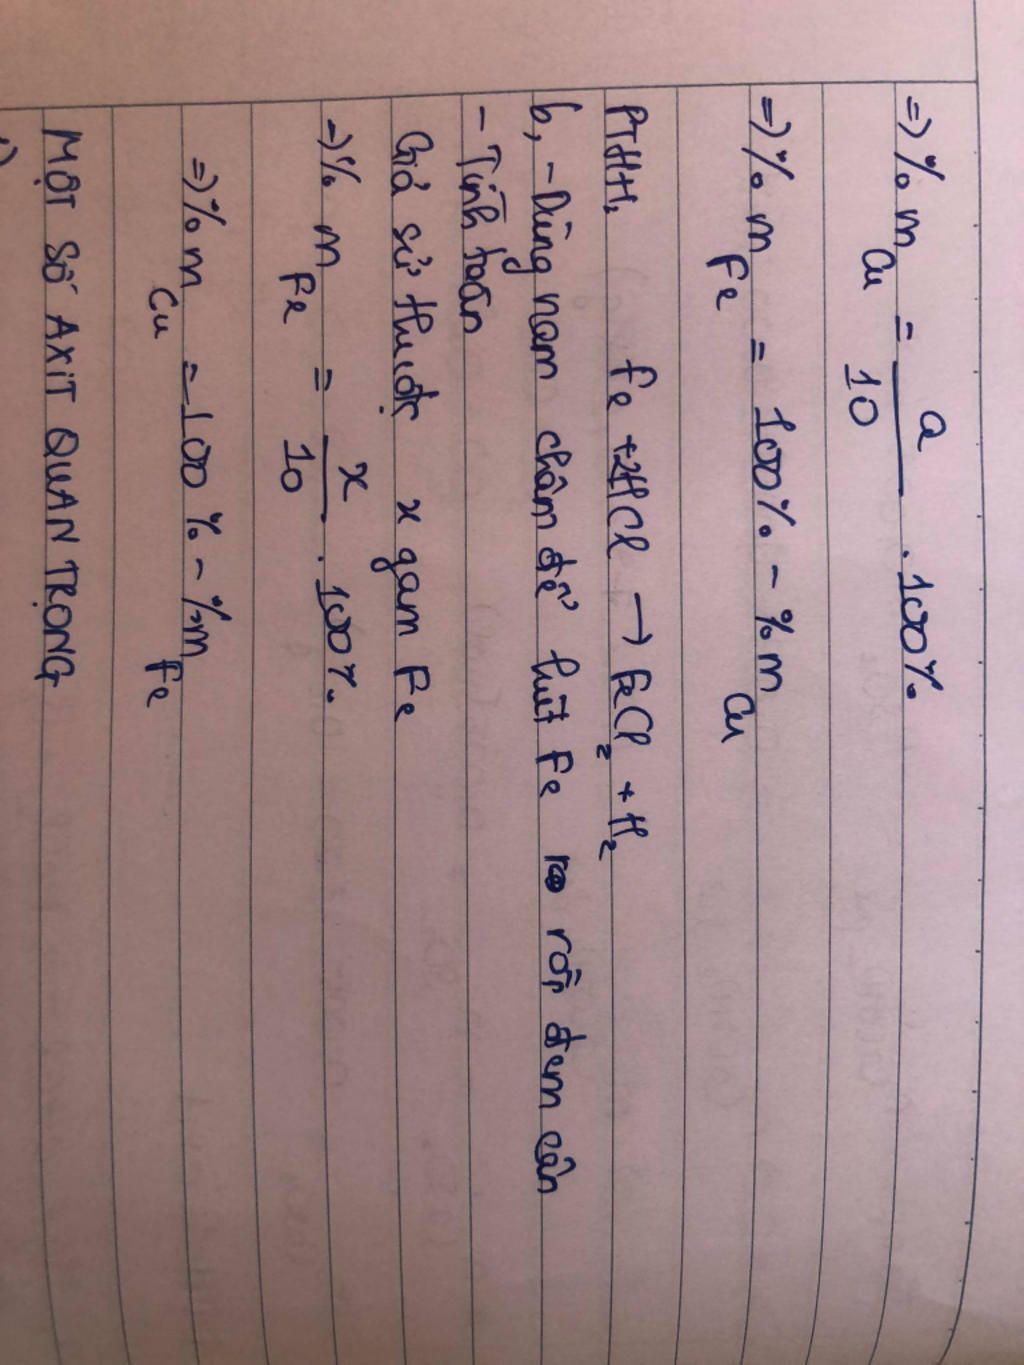 => % m Cu = a/10 . 100%
=> % m Fe = 100% - % m Cu
PTHH, Fe + 2HCl → FeCl2 + H2
b, - Dùng nam châm để hút Fe rồi đem cân
- Tính toán
Giả sử thu đc x gam Fe
=> % m Fe = x/10 . 100%
=> % m Cu = 100% - % m Fe
MỘT SỐ AXIT QUAN TRỌNG